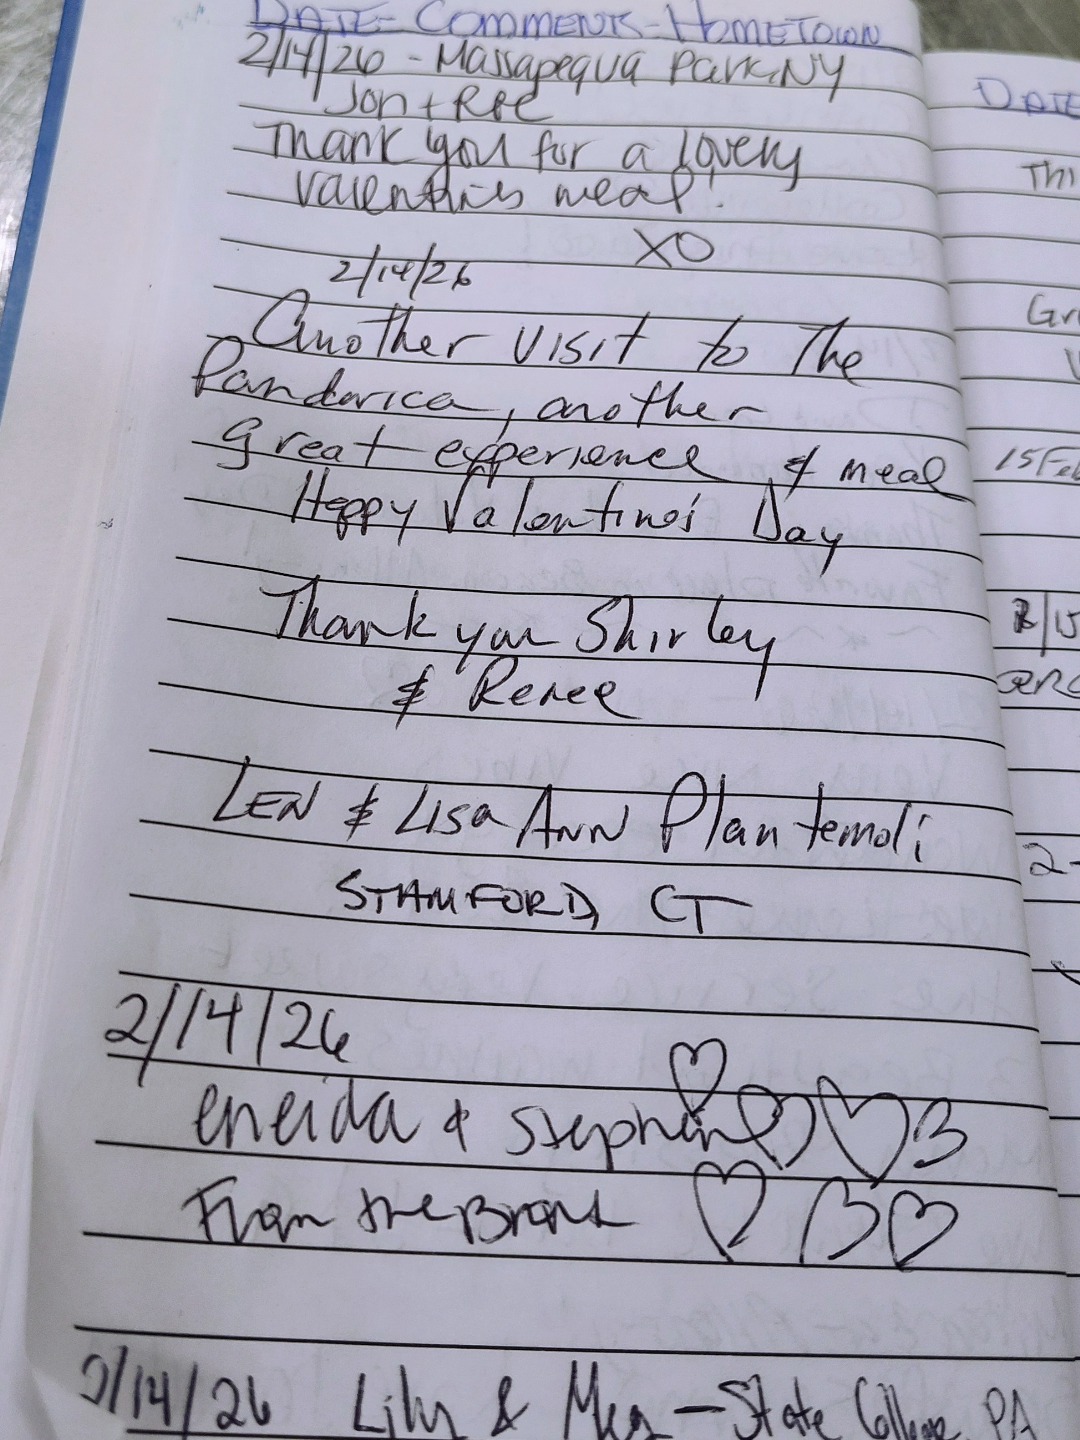 DATE- COMMENTS- HOMETOWN
2/14/26 - Massapequa Park, NY
Jon + Ree
Thank you for a lovely
valentines meal!
XO
2/14/26
Another visit to The
Pandorica, another
great experience & meal
Happy Valentine's Day
Thank you Shirley
& Renee
LEN & LISA ANN Plantemoli
STAMFORD, CT
2/14/26
eneida & Stephen
From the Bronx
2/14/26 Lily & Meg - State College, PA
DATE
Thi
Gr
15 Feb
2/15
2-